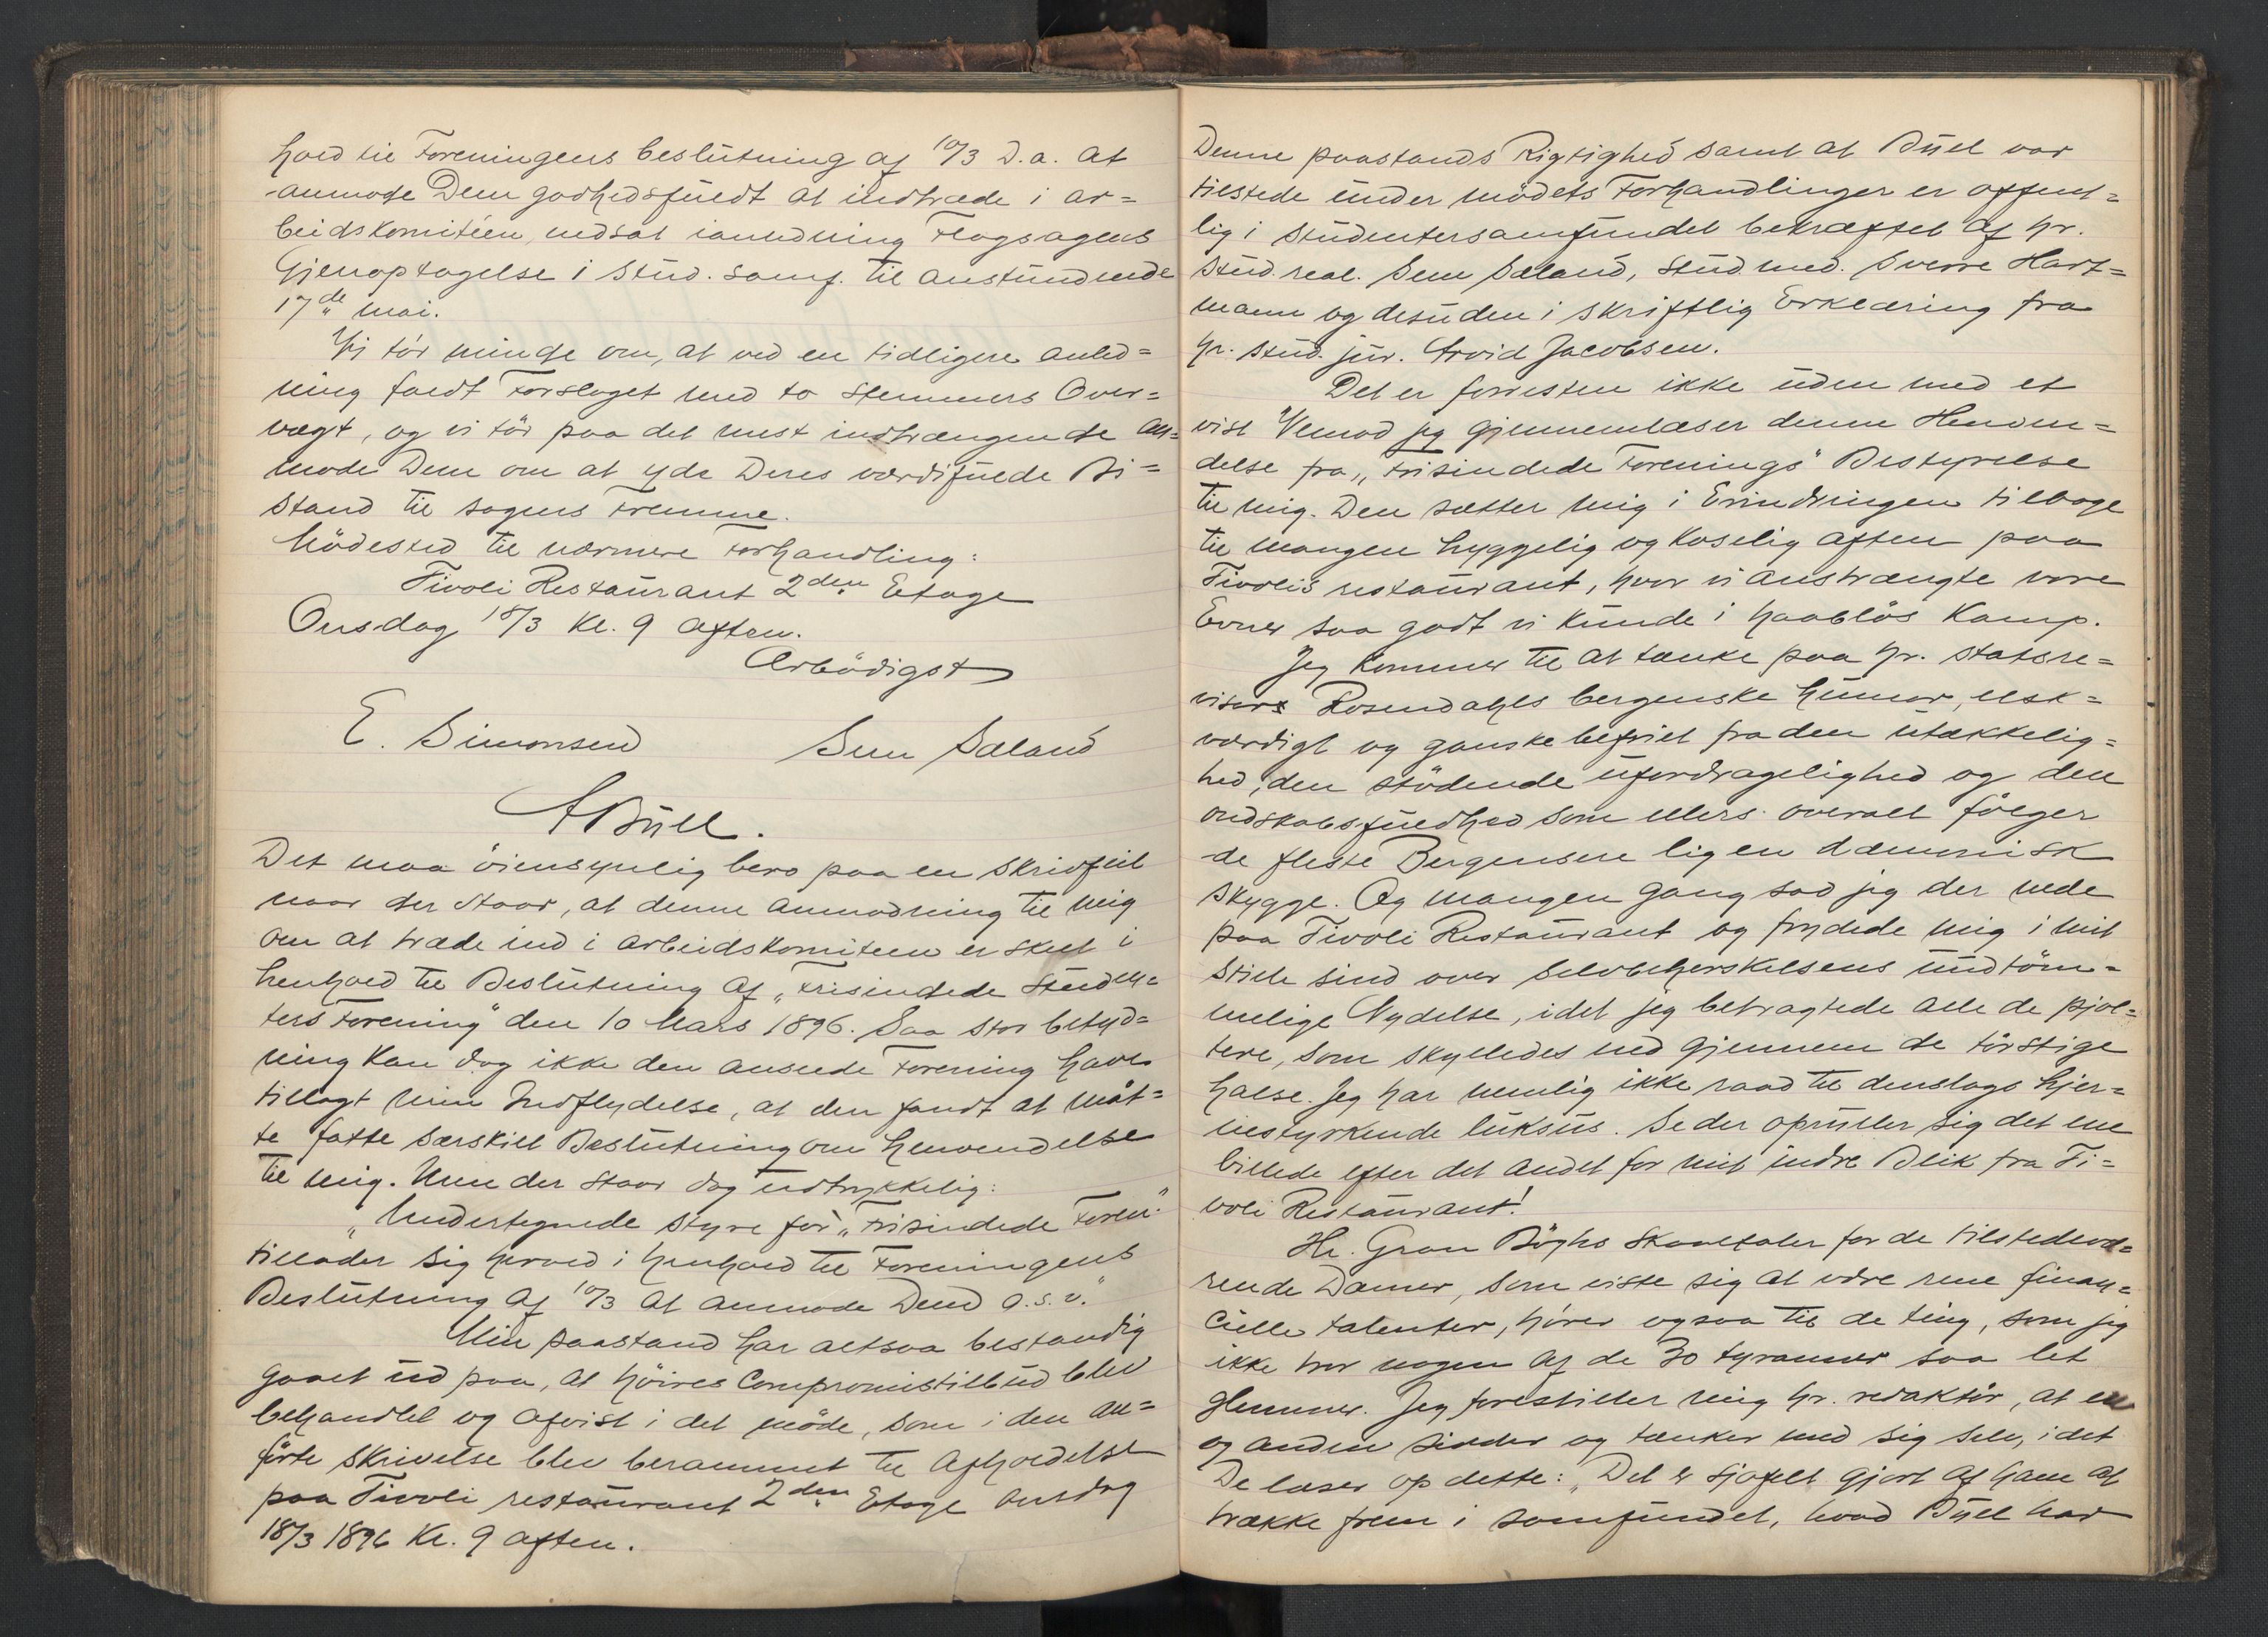 hold til Foreningens beslutning af 10/3 D.a. at
anmode Dem godhedsfuldt at indtræde i ar=
beidskomitéen, nedsat ianledning Flagsagens
Gjenoptagelse i Stud. samf. til anstundende
17de mai.
Vi tör minde om, at ved en tidligere anled=
ning faldt Forslaget med to Stemmers Over=
vægt, og vi tör paa det mest indtrængende an=
mode Dem om at yde Deres værdifulde Bi=
stand til sagens Fremme.
Mödested til nærmere Forhandling:
Tivoli Restaurant 2den Etage
Onsdag 18/3 Kl. 9 aften.
Ærbödigst
E. Simonsen Sem Sæland
A Büll.
Det maa öiensynlig bero paa en skrivfeil
naar der staar, at denne anmodning til mig
om at træde ind i arbeidskomiteen er skeet i
henhold til Beslutning af „Frisindede Studen=
ters Forening" den 10 Mars 1896. Saa stor betyd=
ning kan dog ikke den ansede Forening have
tillagt min Indflydelse, at den fandt at måt=
te fatte særskilt Beslutning om henvendelse
til mig. Men der staar dog udtrykkelig:
„Undertegnede styre for „Frisindede Foren."
tillader sig herved i henhold til Foreningens
Beslutning af 10/3 at anmode Dem o.s.v."
Min paastand har altsaa bestandig
gaaet ud paa, at höires Compromistilbud blev
behandlet og afvist i det möde, som i den an=
förte skrivelse blev berammet til Afholdelse
paa Tivoli restaurant 2den Etage onsdag
18/3 1896 Kl. 9 aften.
Denne paastands Rigtighed samt at Büll var
tilstede under mödets Forhandlinger er offent=
lig i Studentersamfundet bekræftet af hr.
stud. real. Sem Sæland, stud. med. Sverre Hart=
mann og desuden i skriftlig Erklæring fra
hr. stud. jur. Arvid Jacobsen.
Det er forresten ikke uden med et
vist Vemod jeg gjennemlæser denne Henven=
delse fra „Frisindede Forenings" Bestyrelse
til mig. Den sætter mig i Erindringen tilbage
til mangen hyggelig og koselig aften paa
Tivolis restaurant, hvor vi anstrængte vore
Evner saa godt vi kunde i haablös Kamp.
Jeg kommer til at tænke paa hr. statsre=
visor Rosendahls bergenske humor, elsk=
værdigt og ganske befriet fra den utækkelig=
hed, den stödende ufordragelighed og den
ondskabsfuldhed som ellers overalt fölger
de fleste Bergensere lig en dæmonisk
skygge. Og mangen gang sad jeg der nede
paa Tivoli Restaurant og frydede mig i mit
stille sind over selvbeherskelsens eiendöm=
melige Nydelse, idet jeg betragtede alle de pjol=
tere, som skylledes ned gjennem de törstige
halse. Jeg har nemlig ikke raad til denslags hjer=
nestyrkende luksus. Se der opruller sig det ene
billede efter det andet for mit indre Blik fra Ti=
voli Restaurant!
Hr. Gran Böghs skaaltaler for de tilstedevæ=
rende Damer, som viste sig at være rene finan=
cielle talenter, hörer ogsaa til de ting, som jeg
ikke tror nogen af de 30 tyranner saa let
glemmer. Jeg forestiller mig hr. redaktör, at en
og anden sidder og tænker med sig selv, idet
De læser op dette: „Det er sjofelt gjort af ham at
trække frem i samfundet, hvad Büll har